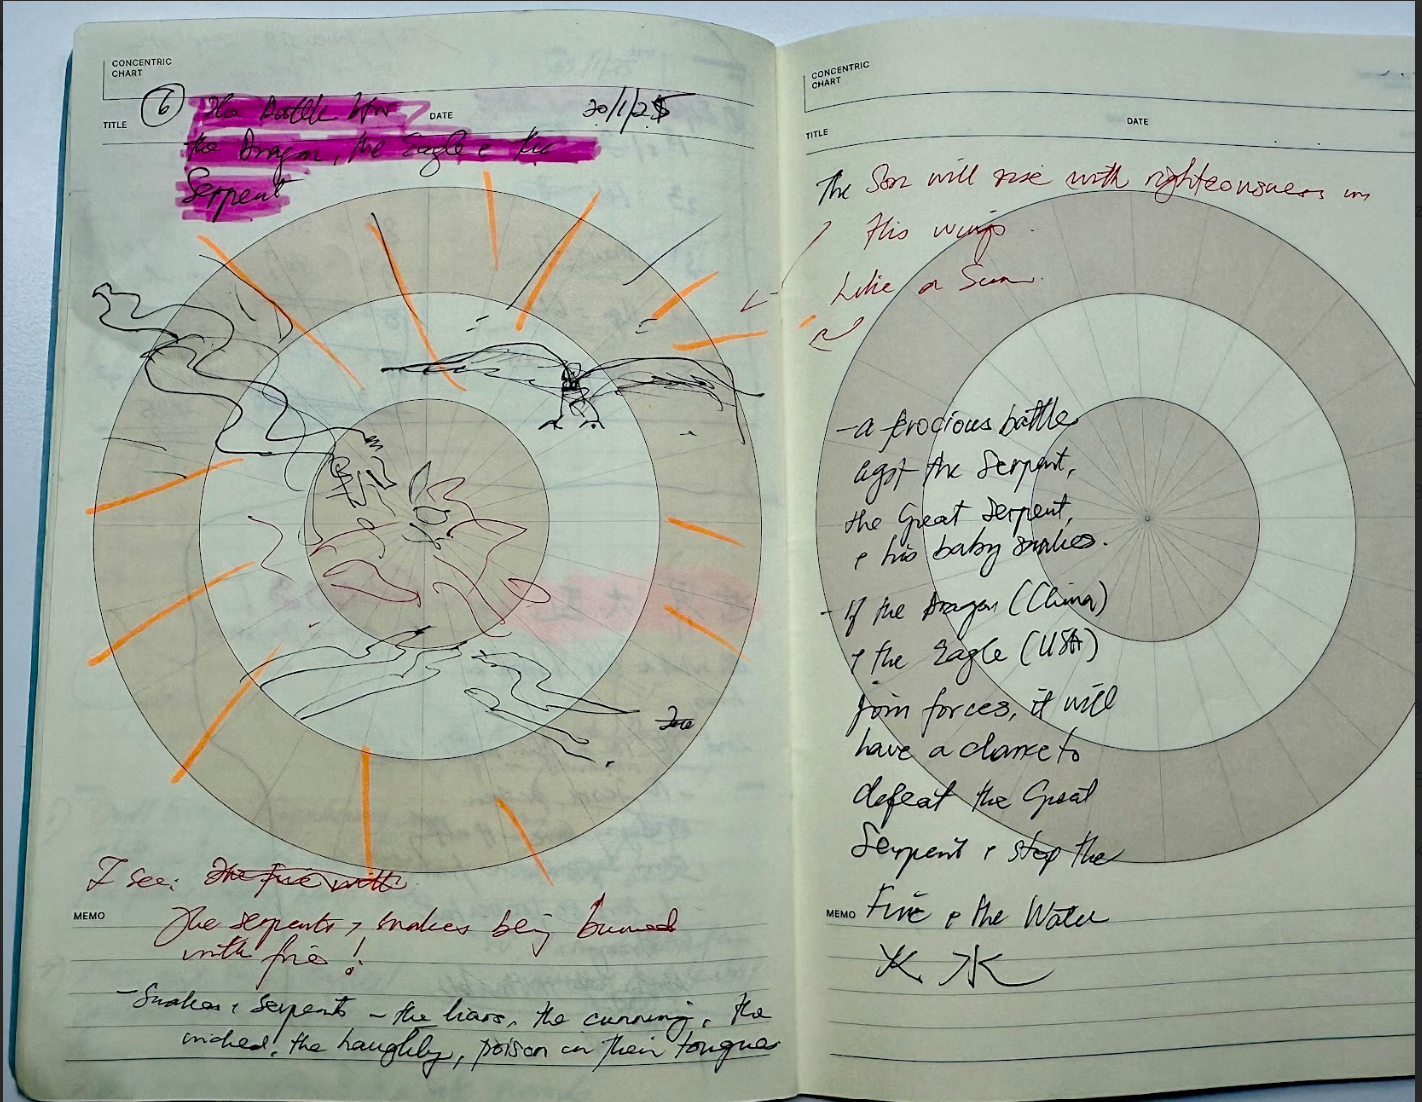 CONCENTRIC
CHART
TITLE
6
The Battle btw
the Dragon, the Eagle & the
Serpent
DATE
20/1/25
I see: The fire with
MEMO
The serpents & snakes being burned
with fire!
- Snakes & Serpents - the liars, the cunning, the
wicked, the haughty, poison in their tongue
CONCENTRIC
CHART
TITLE
DATE
The Son will rise with righteousness in
His wings
Like a Sun.
- a ferocious battle
agst the Serpent,
the Great Serpent,
& his baby snakes.
- If the Dragon (China)
& the Eagle (USA)
join forces, it will
have a chance to
defeat the Great
Serpent & stop the
MEMO
Fire & the Water
火 水